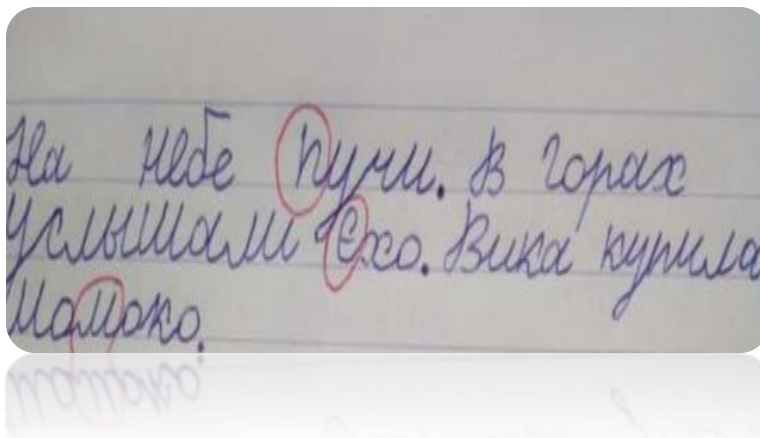 На небе пучи. В горах
услышали єхо. Вика купила
момоко.